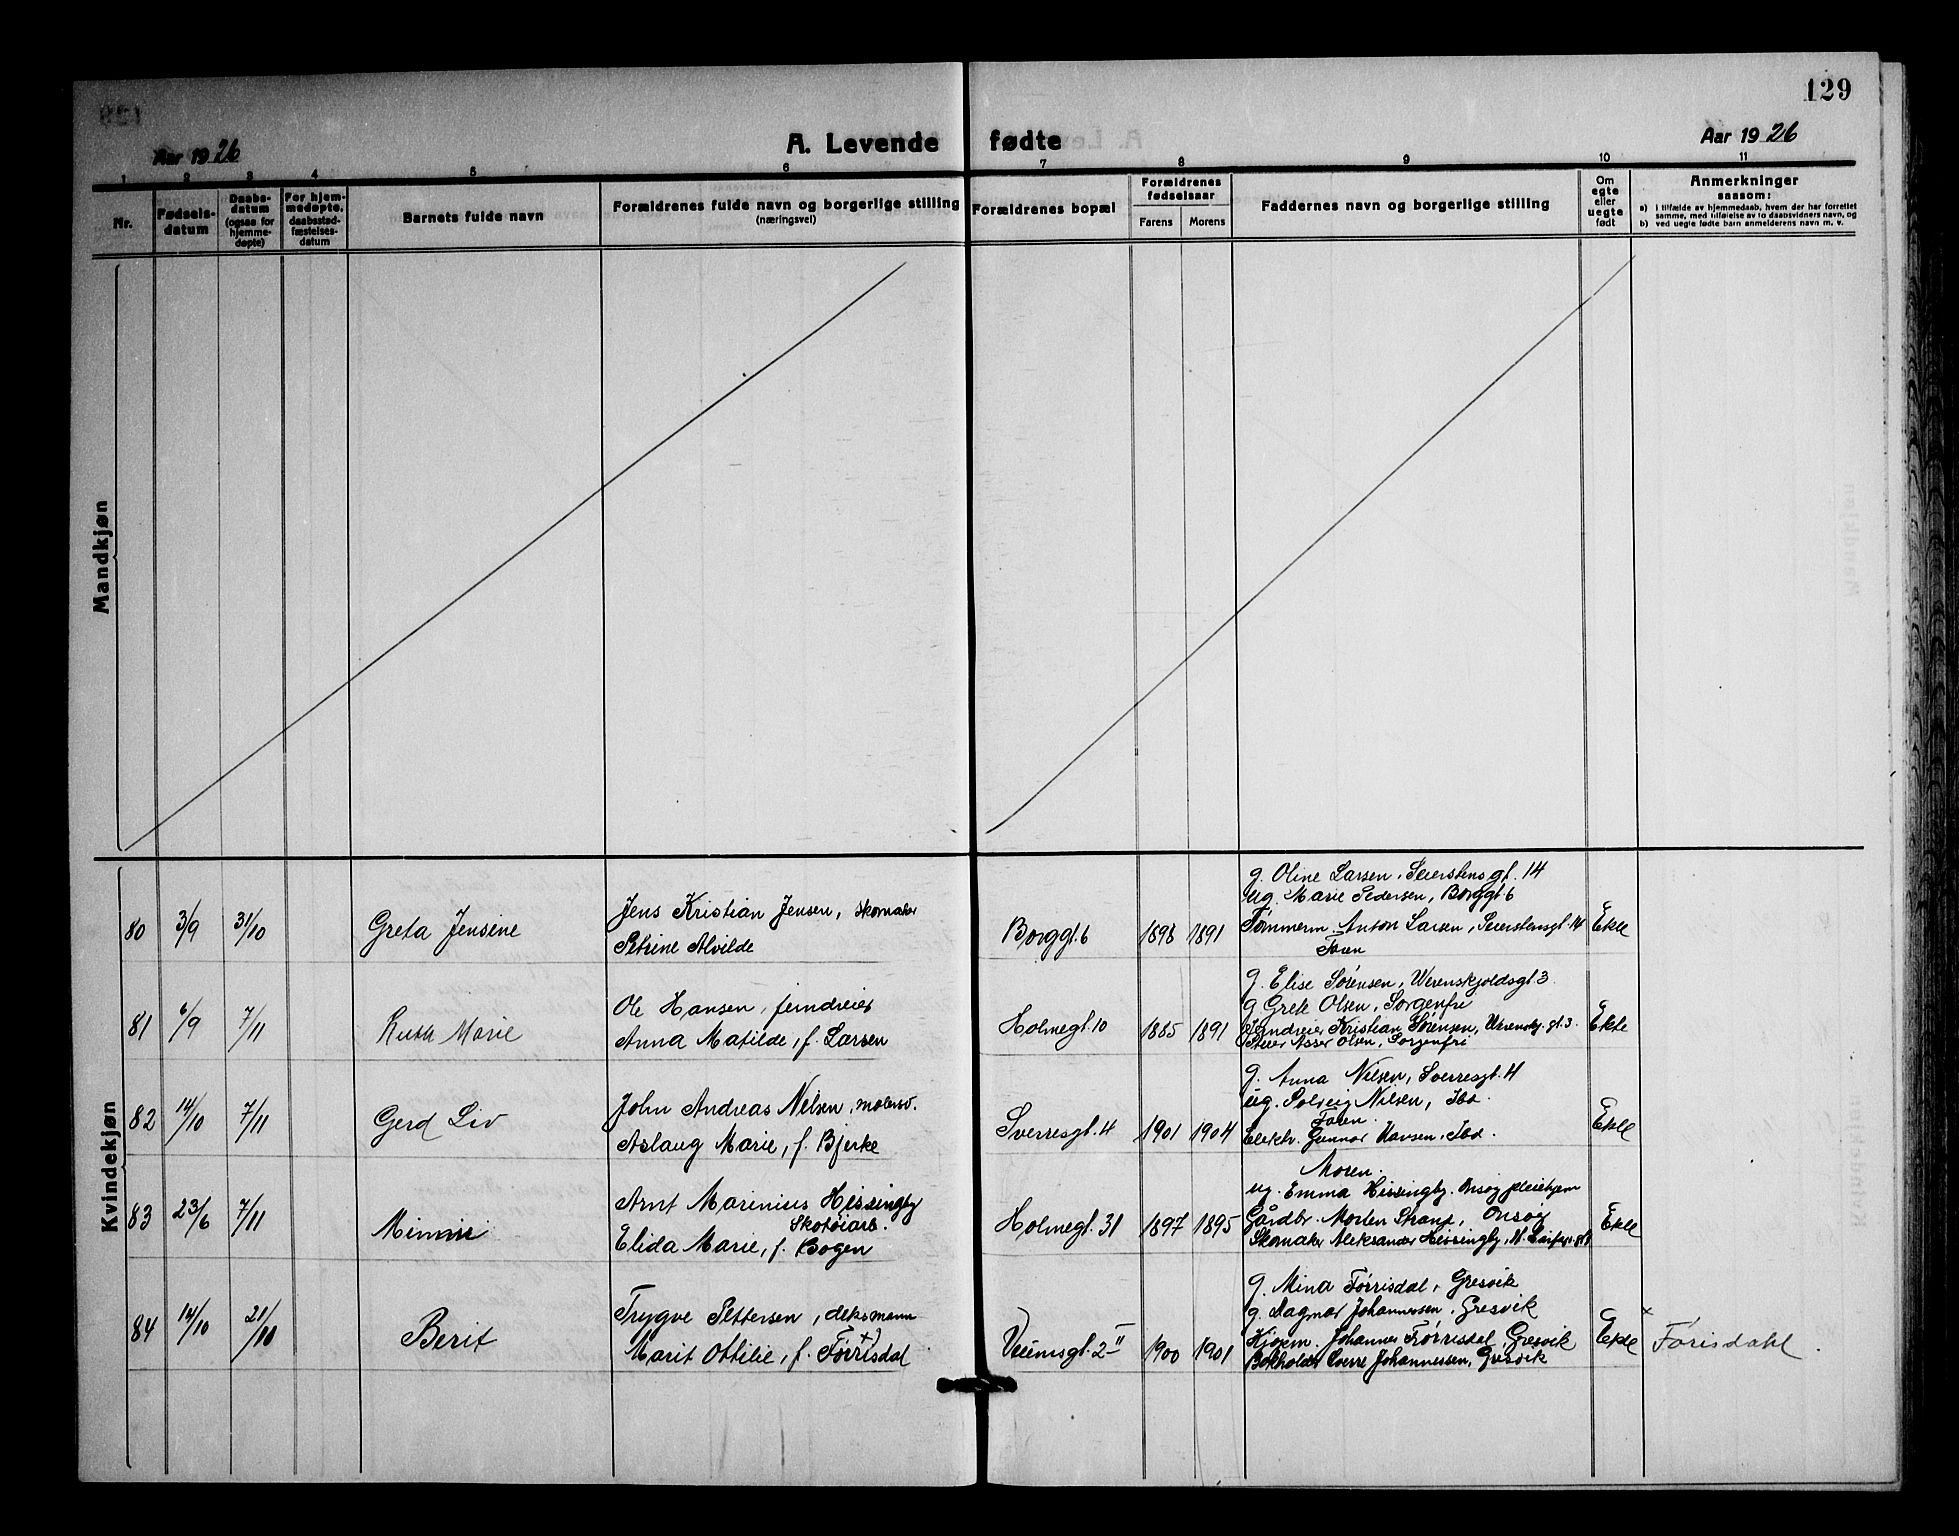 129
Aar 1926
A. Levende fødte
Aar 1926
1 2 3 4 5 6 7 8 9 10 11
Nr.
Fødsels-
datum
Daabs-
datum
(ogsaa for
hjemme-
døpte)
For hjem-
medøpte,
daabsstad-
fæstelses-
datum
Barnets fulde navn
Forældrenes fulde navn og borgerlige stilling
(næringsvei)
Forældrenes bopæl
Forældrenes
fødselsaar
Farens Morens
Faddernes navn og borgerlige stilling
Om
egte
eller
uegte
født
Anmerkninger
saasom:
a) i tilfælde av hjemmedaab, hvem der har forrettet
samme, med tilføielse av to daabsvidners navn, og
b) ved uegte fødte barn anmelderens navn m. v.
Mandkjøn
Kvindekjøn
80 3/9 31/10 Greta Jensine
Jens Kristian Jensen, Skomaker
Petrine Alvilde
Borggt. 6 1898 1891
g. Oline Larsen, Seierstensgt. 14
ug. Marie Pedersen, Borggt. 6
Tømmerm. Anton Larsen, Seierstensgt. 14
Faren
Ekte
81 6/9 7/11 Ruth Marie
Ole Hansen, jerndreier
Anna Matilde, f. Larsen
Holmegt. 10 1885 1891
g. Elise Sørensen, Werenskjoldsgt. 3.
g. Grete Olsen, Sorgenfri
Jerndreier Kristian Sørensen, Werenskj. gt. 3.
Asser Olsen, Sorgenfri
Ekte
82 14/10 7/11 Gerd Liv
John Andreas Nilsen, malersv.
Aslaug Marie, f. Bjerke
Sverresgt. 4 1901 1904
g. Anna Nilsen, Sverresgt. 4
ug. Solveig Nilsen, Ibd.
Faren.
Elektr. Gunnar Hansen, Ibd.
Ekte
83 23/6 7/11 Mimmi
Arnt Marinius Hissingby
Skotøiarb.
Elida Marie, f. Bogen
Holmegt. 31 1897 1895
Moren.
ug. Emma Hissingby. Onsøy pleiehjem
Gårdbr. Morten Strand, Onsøy
Skomaker Aleksander Hissingby,
Ekte
84 14/10 21/10 Berit
Trygve Pettersen, deksmann
Marit Ottilie, f. Førrisdal +)
Veumsgt. 2 II 1900 1901
g. Mina Førrisdal, Gresvik
g. Dagmar Johannessen, Gresvik
Kjøpm. Johannes Førrisdal, Gresvik
Bokholder Sverre Johannessen, Gresvik
Ekte
x Førisdahl.